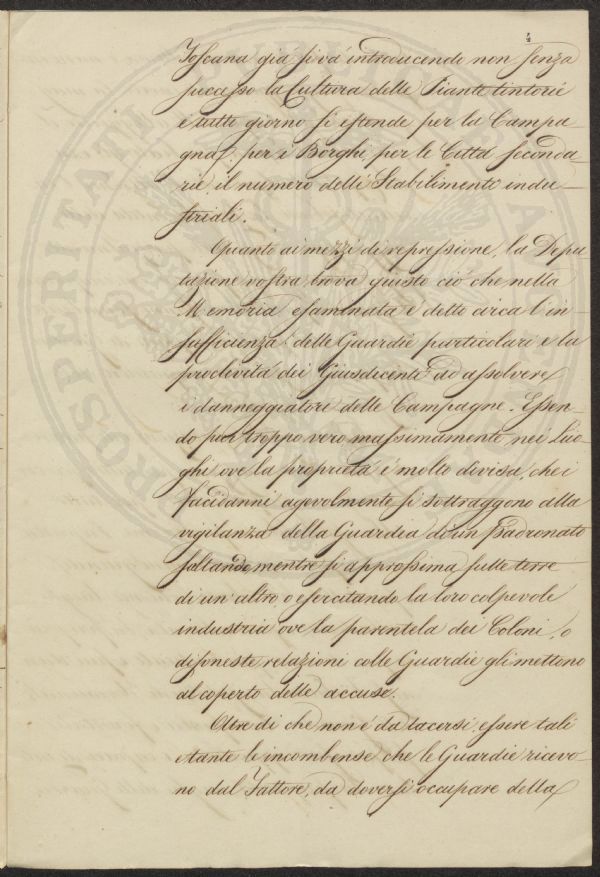 4
Toscana già si và introducendo non senza
successo la Cultura delle Piante tintorie
e tutto giorno si estende per la Campa-
gna, per i Borghi, per le Città seconda-
rie, il numero delli Stabilimenti indu-
striali.
Quanto ai mezzi di repressione, la Depu-
tazione vostra, trova giusto ciò che nella
Memoria esaminata è detto circa l'in-
sufficienza delle Guardie particolari e la
proclività dei Giusdicenti ad assolvere
i danneggiatori delle Campagne. Essen-
do pur troppo vero massimamente nei Luo-
ghi ove la proprietà è molto divisa, che i
Facidanni agevolmente si sottraggono alla
vigilanza della Guardia di un Padronato
saltando, mentre si approssima sulle terre
di un'altro, o esercitando la loro colpevole
industria ove la parentela dei Coloni, o
disoneste relazioni colle Guardie gli mettono
al coperto delle accuse.
Oltre di che non è da tacersi, essere tali
e tante le incombense che le Guardie ricevo-
no dal Fattore, da doversi occupare della
PROSPERITATI